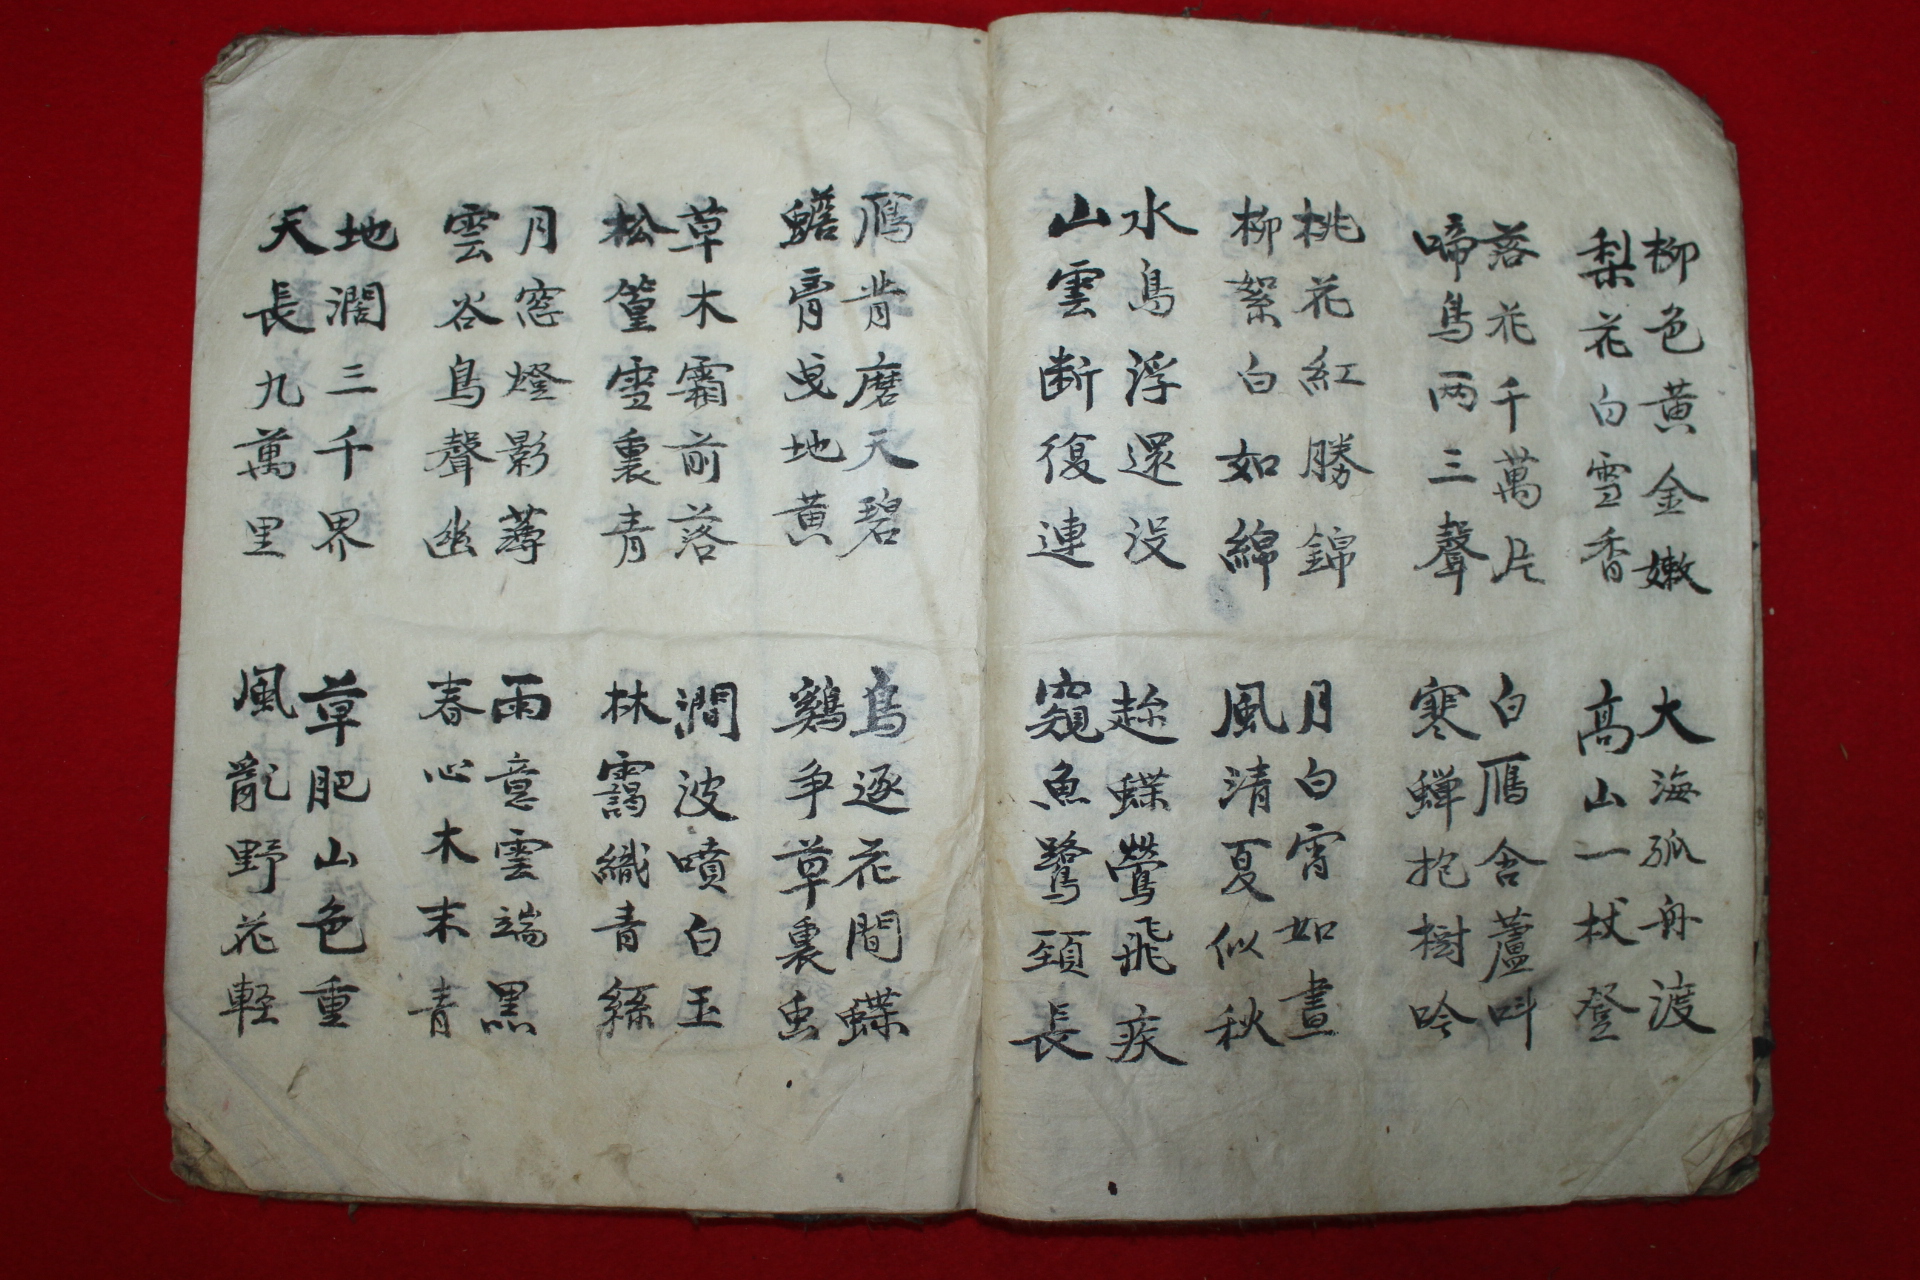 柳色黃金嫩
梨花白雪香
大海孤舟渡
高山一杖登
落花千萬片
啼鳥兩三聲
白鴈含蘆叫
寒蟬抱樹吟
桃花紅勝錦
柳絮白如綿
月白宵如晝
風清夏似秋
水鳥浮還沒
山雲斷復連
趂蝶鶯飛疾
窺魚鷺頸長
鴈背磨天碧
蟾膏曳地黃
鳥逐花間蝶
鷄爭草裏虫
草木霜前落
松篁雪裏青
澗波噴白玉
林靄織青絲
月窓燈影薄
雲谷鳥聲幽
雨意雲端黑
春心木末青
地濶三千界
天長九萬里
草肥山色重
風亂野花輕